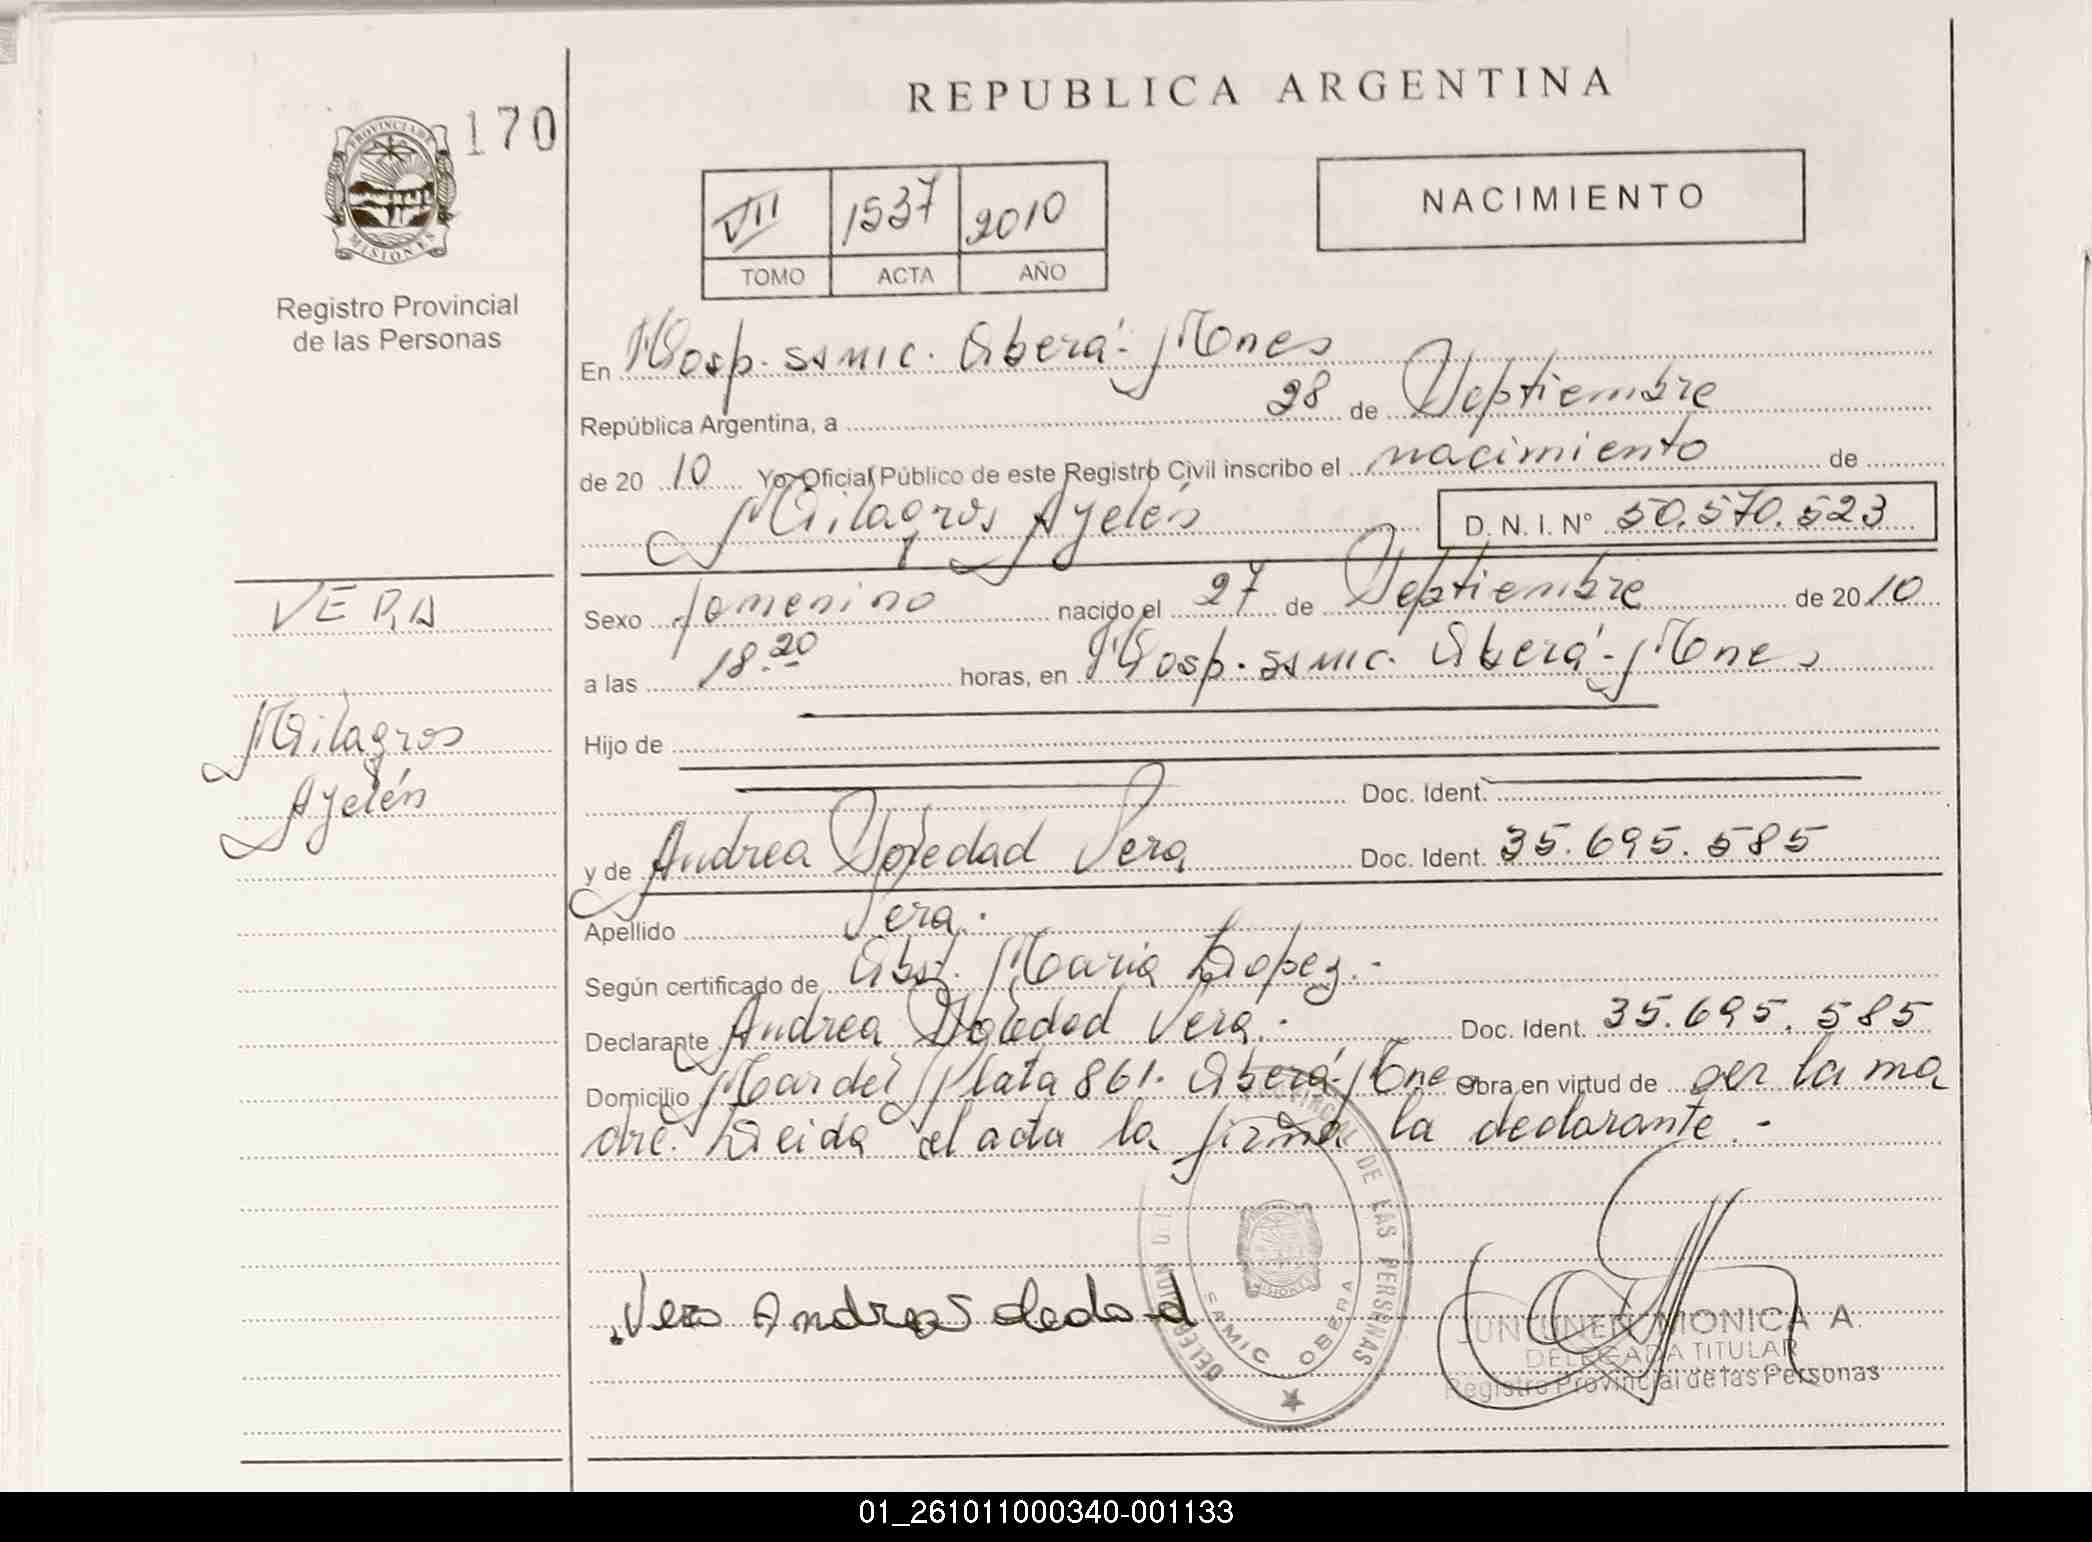 REPUBLICA ARGENTINA
170
PROVINCIA DE
MISIONES
Registro Provincial
de las Personas
VII 1537 2010
TOMO ACTA AÑO
NACIMIENTO
En Hosp. SAMIC. Oberá - Mnes
República Argentina, a 28 de Septiembre
de 2010 Yo Oficial Público de este Registro Civil inscribo el nacimiento de
Milagros Ayelén D. N. I. N° 50.570.523
VERA
Milagros
Ayelén
Sexo femenino nacido el 27 de Septiembre de 2010
a las 18.20 horas, en Hosp. SAMIC. Oberá - Mnes
Hijo de
Doc. Ident.
y de Andrea Soledad Vera Doc. Ident. 35.695.585
Apellido Vera.
Según certificado de Obst. Maria Lopez.-
Declarante Andrea Soledad Vera.- Doc. Ident. 35.695.585
Domicilio Mar del Plata 861. Oberá - Mnes Obra en virtud de ser la ma
dre. Leida el acta la firma la declarante.-
Vera Andrea Soledad
DE LAS PERSONAS
SAMIC OBERA
MONICA A.
DELEGADA TITULAR
Registro Provincial de las Personas
01_261011000340-001133